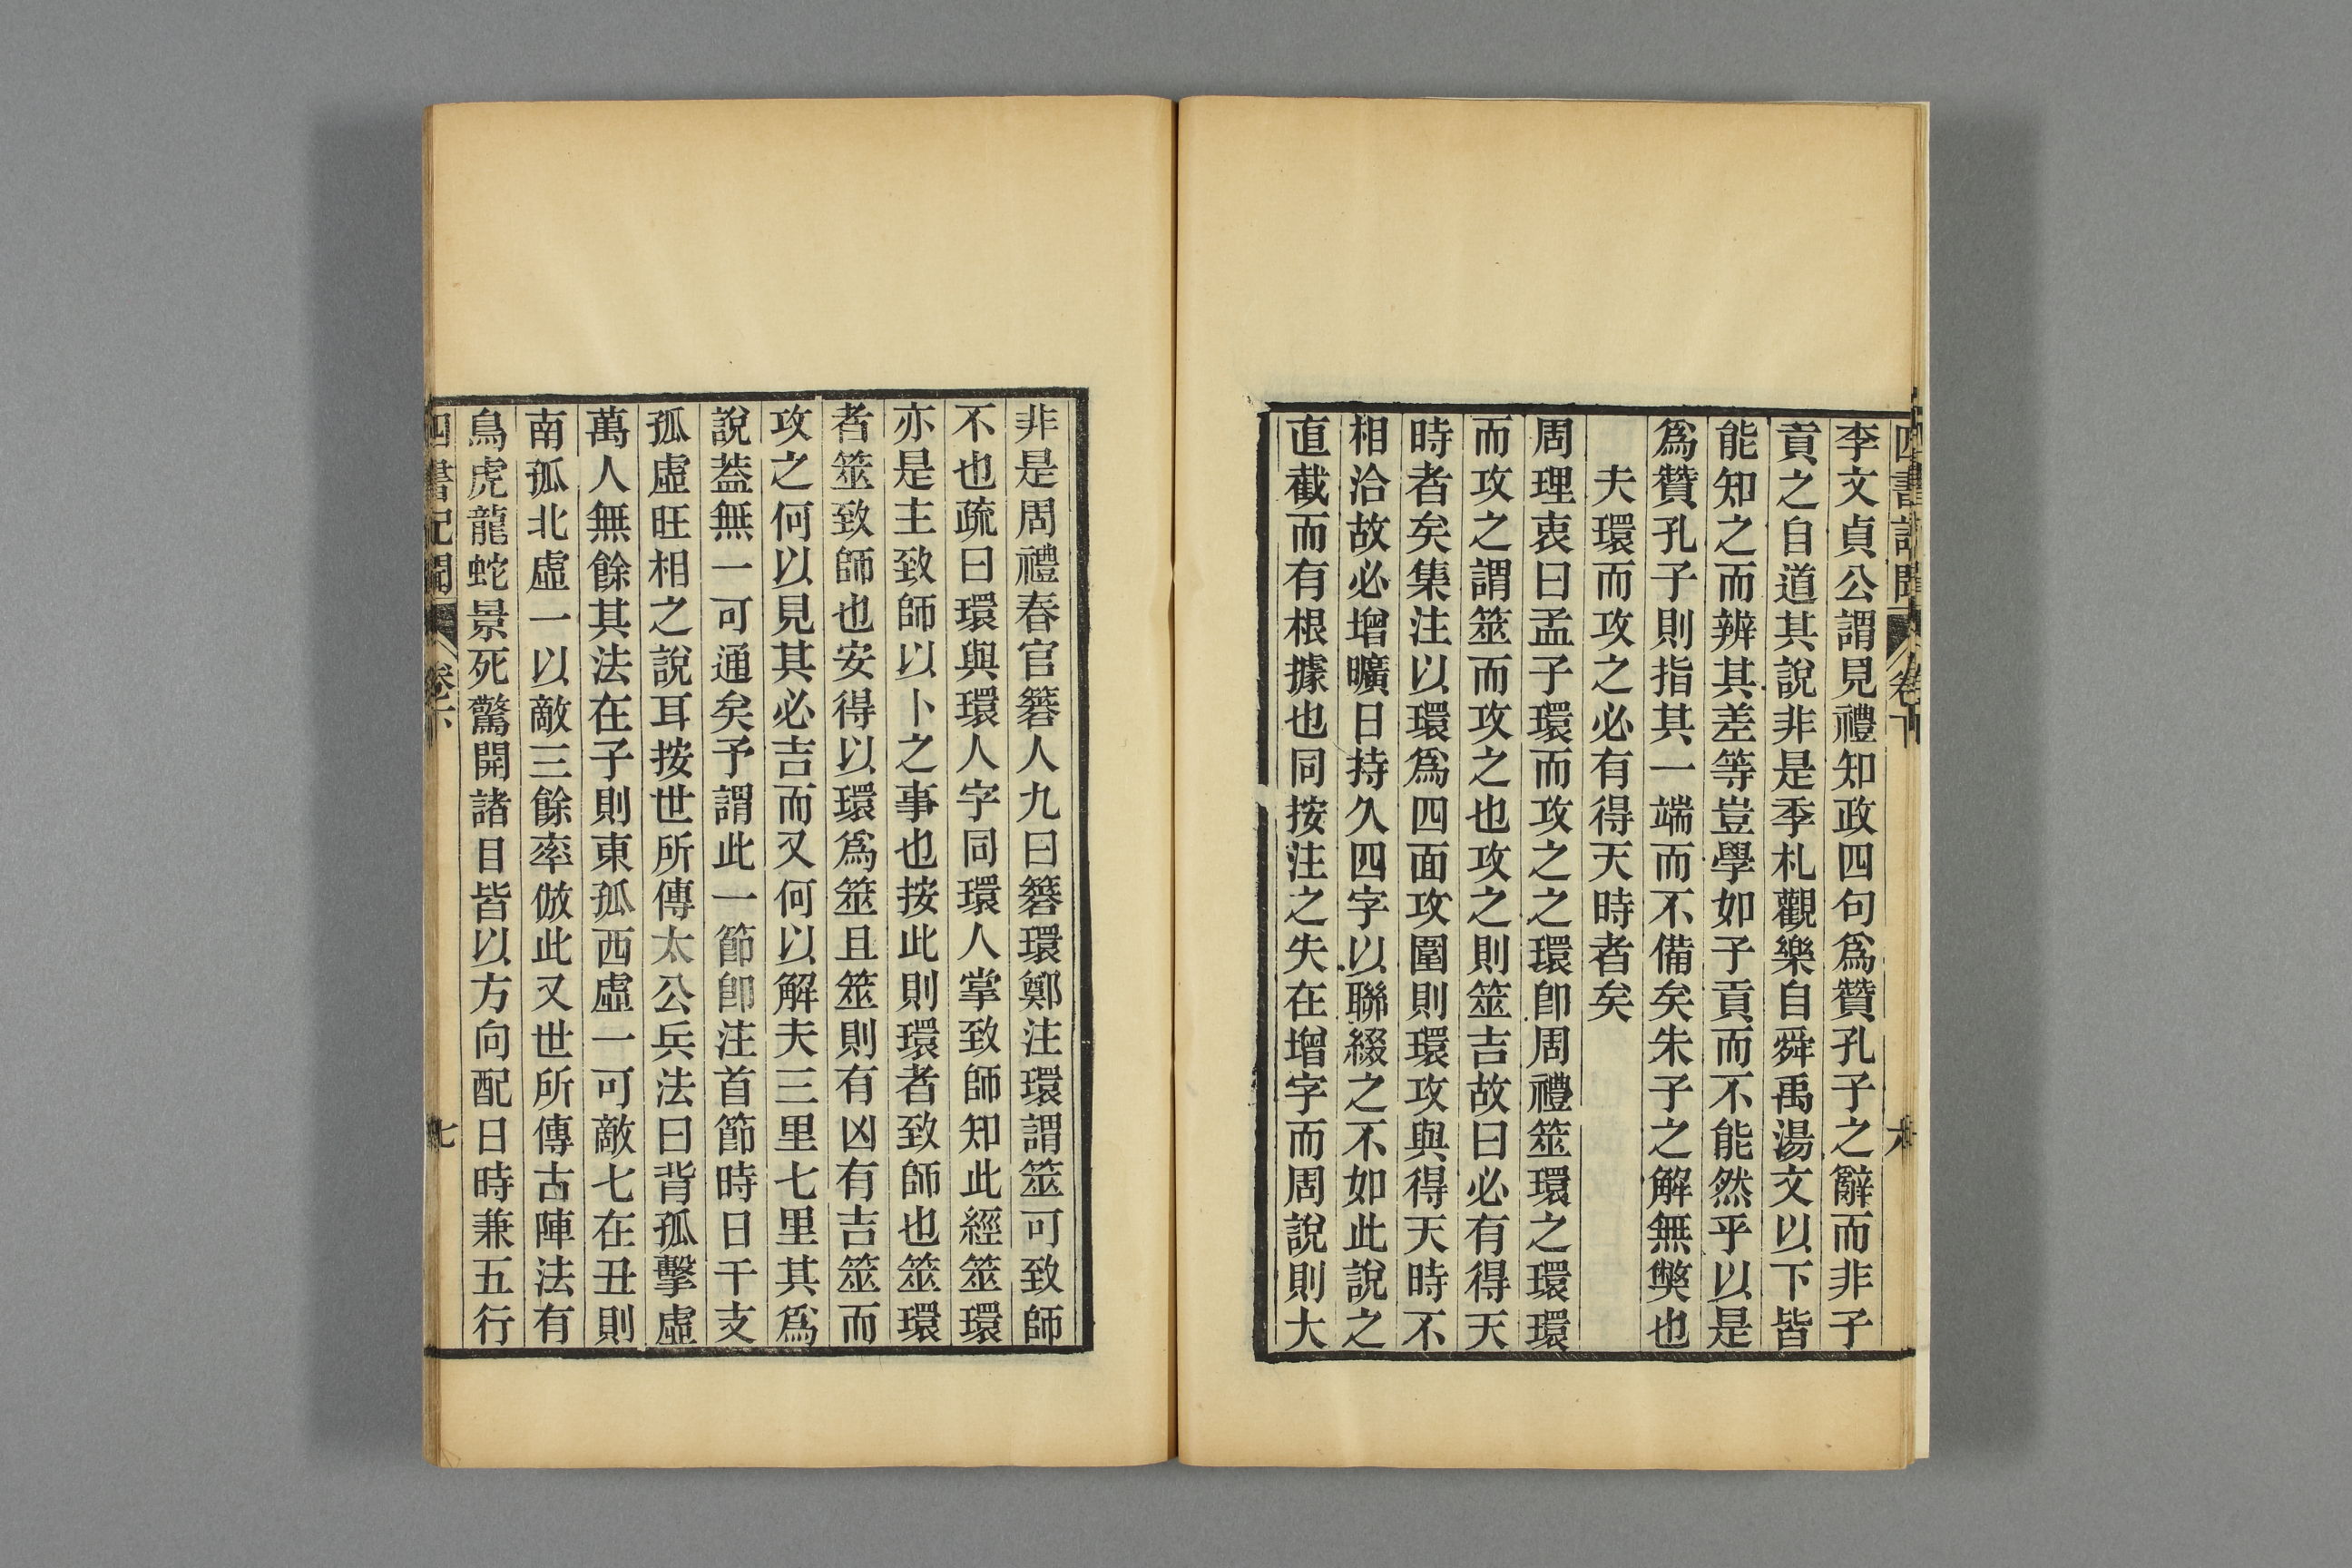 四書記聞 卷下 六
李文貞公謂見禮知政四句爲贊孔子之辭而非子
貢之自道其說非是季札觀樂自舜禹湯文以下皆
能知之而辨其差等豈學如子貢而不能然乎以是
爲贊孔子則指其一端而不備矣朱子之解無獘也
夫環而攻之必有得天時者矣
周理衷曰孟子環而攻之之環卽周禮簭環之環環
而攻之謂簭而攻之也攻之則簭吉故曰必有得天
時者矣集注以環爲四面攻圍則環攻與得天時不
相洽故必增曠日持久四字以聯綴之不如此說之
直截而有根據也同按注之失在增字而周說則大
非是周禮春官簭人九曰簭環鄭注環謂筮可致師
不也疏曰環與環人字同環人掌致師知此經筮環
亦是主致師以卜之事也按此則環者致師也筮環
者筮致師也安得以環爲筮且筮則有凶有吉筮而
攻之何以見其必吉而又何以解夫三里七里其爲
說葢無一可通矣予謂此一節卽注首節時日干支
孤虛旺相之說耳按世所傳太公兵法曰背孤擊虛
萬人無餘其法在子則東孤西虛一可敵七在丑則
南孤北虛一以敵三餘率倣此又世所傳古陣法有
鳥虎龍蛇景死驚開諸目皆以方向配日時兼五行
四書記聞 卷下 七